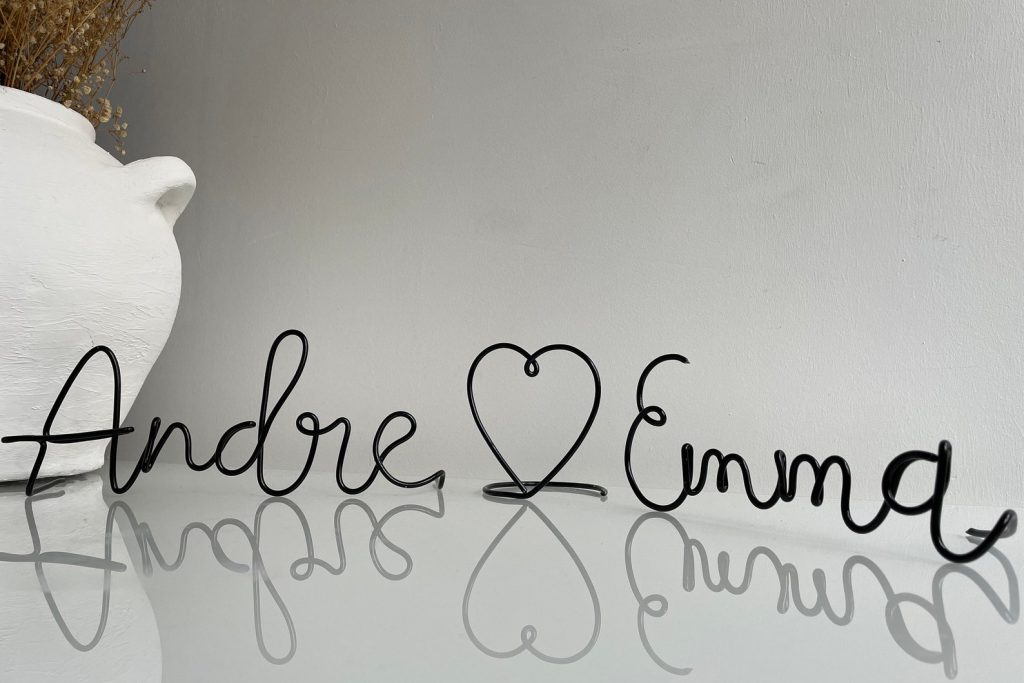 Andre Emma